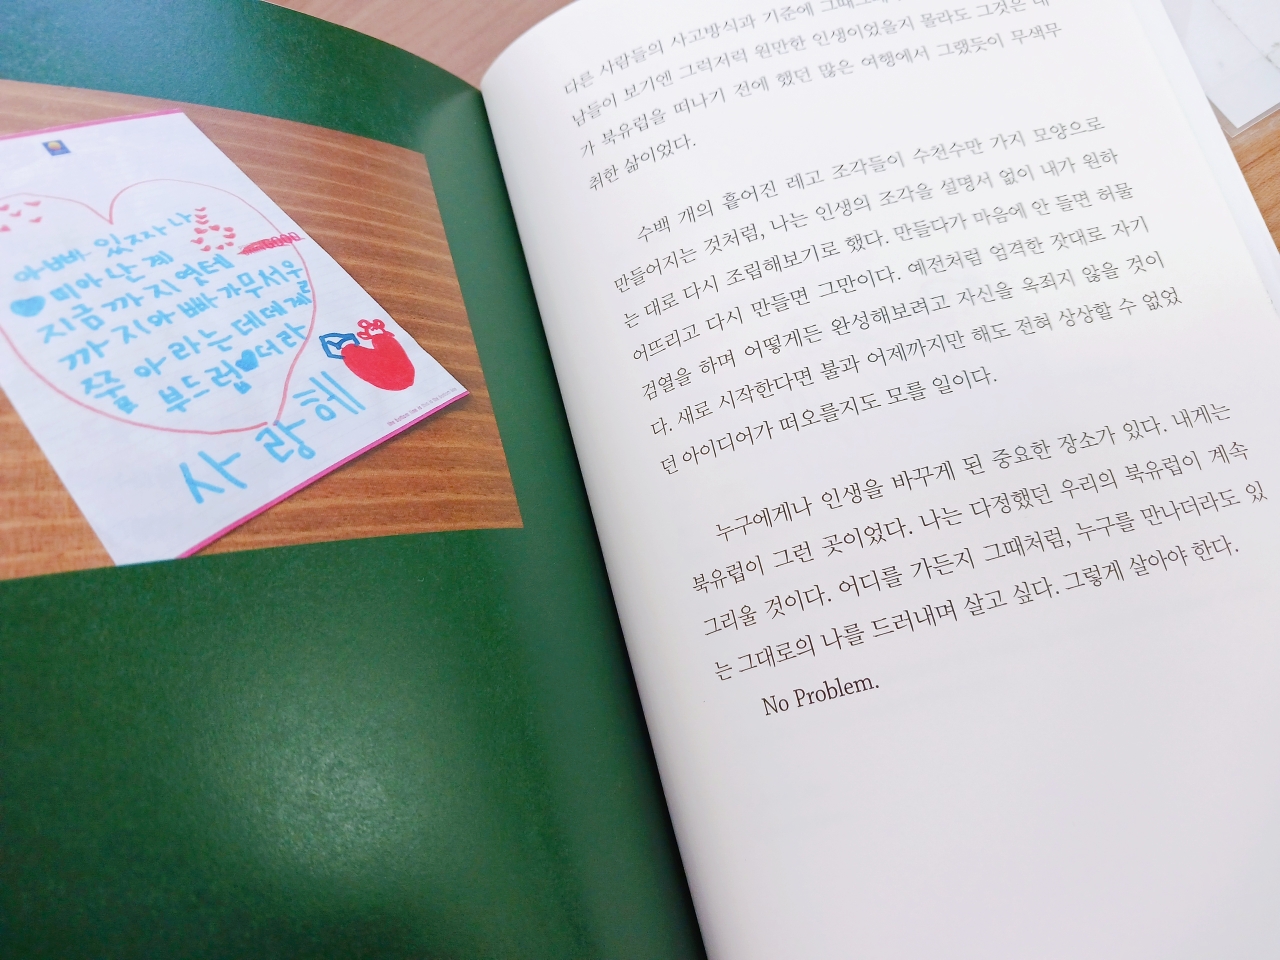 아빠 있짜나
미아난 게
지금까지 엿테
까지 아빠가 무서우
줄 아라는데 데게
부드럽 더라
사랑헤
다른 사람들의 사고방식과 기준에
남들이 보기엔 그럭저럭 원만한 인생이었을지 몰라도 그것은 내
가 북유럽을 떠나기 전에 했던 많은 여행에서 그랬듯이 무색무
취한 삶이었다.
수백 개의 흩어진 레고 조각들이 수천수만 가지 모양으로
만들어지는 것처럼, 나는 인생의 조각을 설명서 없이 내가 원하
는 대로 다시 조립해보기로 했다. 만들다가 마음에 안 들면 허물
어뜨리고 다시 만들면 그만이다. 예전처럼 엄격한 잣대로 자기
검열을 하며 어떻게든 완성해보려고 자신을 옥죄지 않을 것이
다. 새로 시작한다면 불과 어제까지만 해도 전혀 상상할 수 없었
던 아이디어가 떠오를지도 모를 일이다.
누구에게나 인생을 바꾸게 된 중요한 장소가 있다. 내게는
북유럽이 그런 곳이었다. 나는 다정했던 우리의 북유럽이 계속
그리울 것이다. 어디를 가든지 그때처럼, 누구를 만나더라도 있
는 그대로의 나를 드러내며 살고 싶다. 그렇게 살아야 한다.
No Problem.